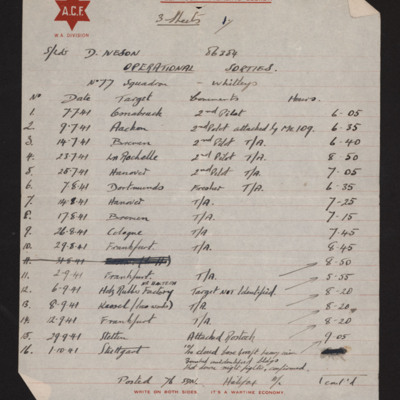 3 Sheets
A.C.F.
W.A. DIVISION
S/Ldr D. NESON 86254
OPERATIONAL SORTIES.
No 77 Squadron - Whitleys
No Date Target Comments Hours.
1. 7.7.41 Osnabruck 2nd Pilot 6-05
2. 9.7.41 Aachen 2nd Pilot attacked by Me 109. 6-35
3. 14.7.41 Bremen 2nd Pilot T/A. 6-40
4. 23.7.41 La Rochelle 2nd Pilot T/A. 8-50
5. 25.7.41 Hanover 2nd Pilot T/A. 7-05
6. 7.8.41 Dortmund T/A. 6-35
7. 14.8.41 Hanover T/A. 7-25
8. 17.8.41 Bremen T/A. 7-15
9. 26.8.41 Cologne T/A. 7-45
10. 29.8.41 Frankfurt T/A. 8-45
8-50
11. 2-9-41 Frankfurt. T/A. 8-55
12. 6.9.41 Rubber Factory Target not Identified. 8-20
13. 8.9.41 Kassel T/A. 8-20
14. 12.9.41 Frankfurt T/A. 8-20
15. 29.9.41 Stettin Attacked Rostock 9-05
16. 1.10.41 Stuttgart
night fighter, confirmed
Posted 76 Halifax 1 cont'd
WRITE ON BOTH SIDES IT'S A WARTIME ECONOMY